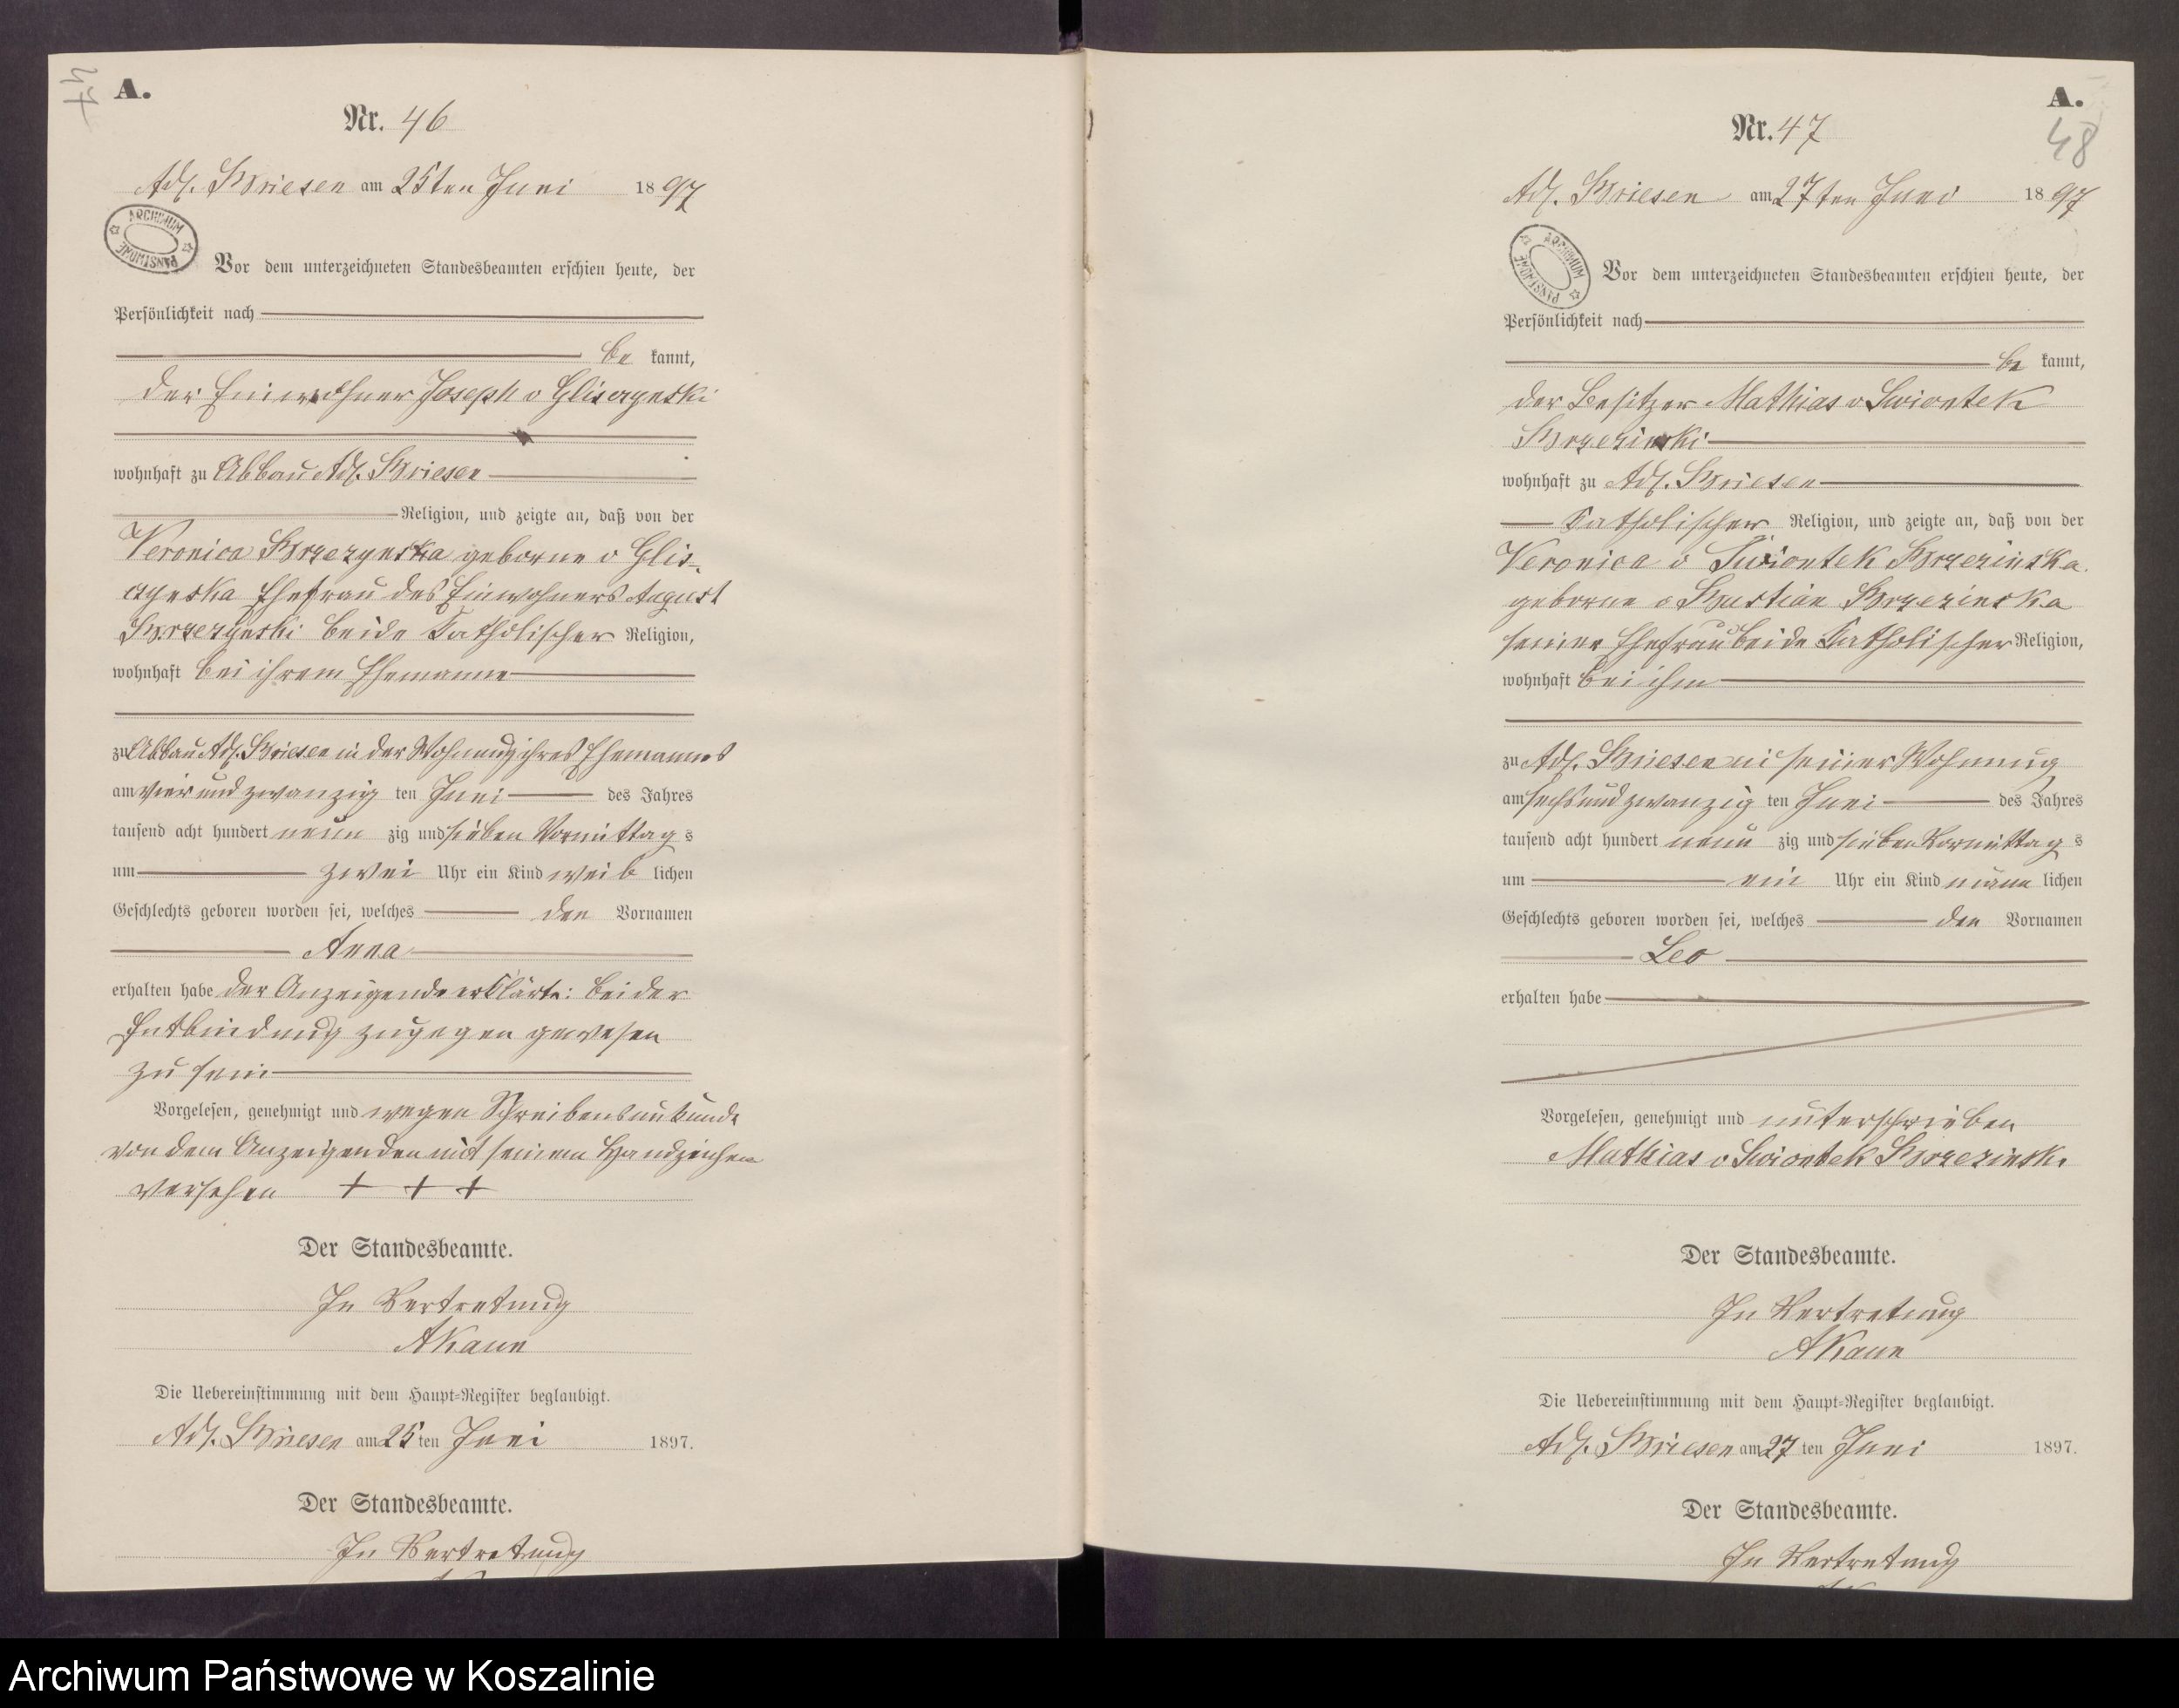 47
A.
Nr. 46
Adl. Briesen am 25ten Juni 1897
ARCHIWUM PAŃSTWOWE
Vor dem unterzeichneten Standesbeamten erschien heute, der
Persönlichkeit nach
be kannt,
der Einwohner Joseph v Glisczynski
wohnhaft zu Abbau Adl. Briesen
Religion, und zeigte an, daß von der
Veronica Brzezynska geborne v Glis-
czynska Ehefrau des Einwohners August
Brzezynski beide katholischer Religion,
wohnhaft bei ihrem Ehemanne
zu Abbau Adl. Briesen in der Wohnung ihres Ehemannes
am vier und zwanzig ten Juni des Jahres
tausend acht hundert neun zig und sieben Vormittag s
um zwei Uhr ein Kind weib lichen
Geschlechts geboren worden sei, welches den Vornamen
Anna
erhalten habe der Anzeigende erklärte: bei der
Entbindung zugegen gewesen
zu sein
Vorgelesen, genehmigt und wegen Schreibensunkunde
von dem Anzeigenden mit seinem Handzeichen
versehen + + +
Der Standesbeamte.
In Vertretung
AKaun
Die Uebereinstimmung mit dem Haupt-Register beglaubigt.
Adl. Briesen am 25 ten Juni 1897.
Der Standesbeamte.
In Vertretung
A.
48
Nr. 47
Adl. Briesen am 27ten Juni 1897
ARCHIWUM PAŃSTWOWE
Vor dem unterzeichneten Standesbeamten erschien heute, der
Persönlichkeit nach
be kannt,
der Besitzer Mathias v Swiontek
Brzezinski
wohnhaft zu Adl. Briesen
katholischer Religion, und zeigte an, daß von der
Veronica v Swiontek Brzezinska
geborne v Brzezinska
seiner Ehefrau beide katholischer Religion,
wohnhaft bei ihm
zu Adl. Briesen in seiner Wohnung
am sechs und zwanzig ten Juni des Jahres
tausend acht hundert neun zig und sieben Vormittag s
um ein Uhr ein Kind männ lichen
Geschlechts geboren worden sei, welches den Vornamen
Leo
erhalten habe
Vorgelesen, genehmigt und unterschrieben
Mathias v Swiontek Brzezinski
Der Standesbeamte.
In Vertretung
AKaun
Die Uebereinstimmung mit dem Haupt-Register beglaubigt.
Adl. Briesen am 27 ten Juni 1897.
Der Standesbeamte.
In Vertretung
Archiwum Państwowe w Koszalinie